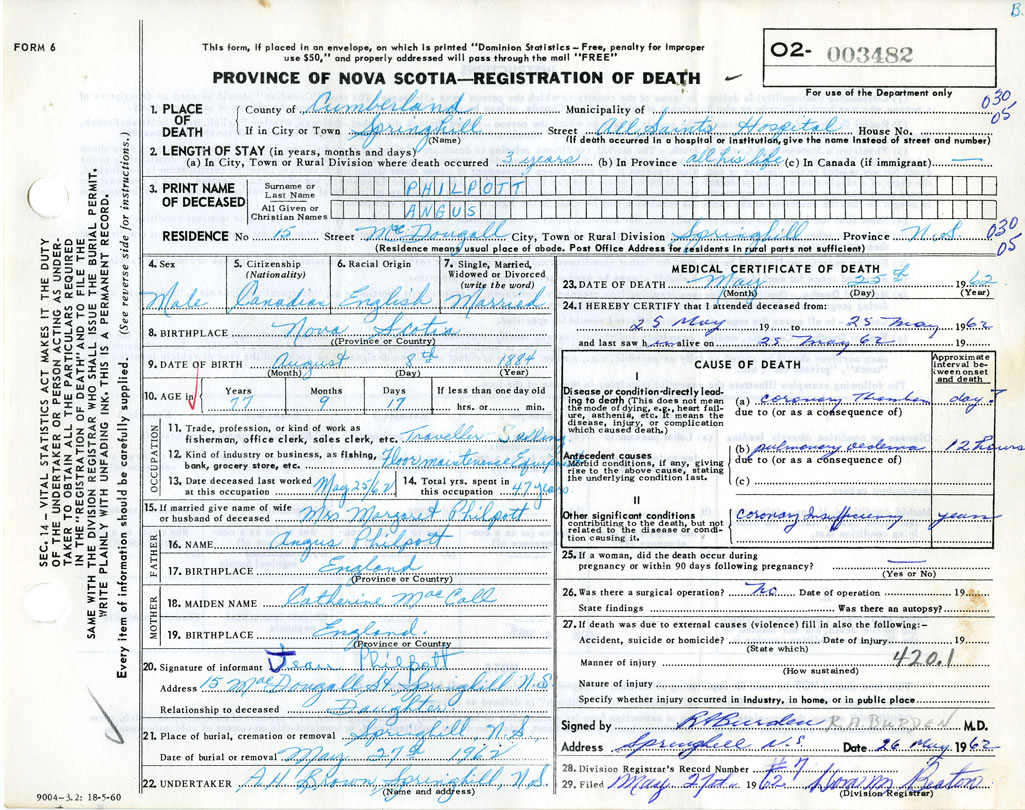 B.
FORM 6
This form, if placed in an envelope, on which is printed "Dominion Statistics – Free, penalty for improper
use $50," and properly addressed will pass through the mail "FREE"
PROVINCE OF NOVA SCOTIA—REGISTRATION OF DEATH
O2- 003482
For use of the Department only
030
05
1. PLACE OF DEATH
County of Cumberland Municipality of
If in City or Town Springhill Street All Saints Hospital House No.
(Name) (If death occurred in a hospital or institution, give the name instead of street and number)
2. LENGTH OF STAY (in years, months and days)
(a) In City, Town or Rural Division where death occurred 3 years (b) In Province all his life (c) In Canada (if immigrant) —
3. PRINT NAME OF DECEASED
Surname or Last Name PHILPOTT
All Given or Christian Names ANGUS
RESIDENCE No 15 Street McDougall City, Town or Rural Division Springhill Province N.S. 030
05
(Residence means usual place of abode. Post Office Address for residents in rural parts not sufficient)
4. Sex
Male
5. Citizenship
(Nationality)
Canadian
6. Racial Origin
English
7. Single, Married,
Widowed or Divorced
(write the word)
Married
8. BIRTHPLACE Nova Scotia
(Province or Country)
9. DATE OF BIRTH August 8th 1884
(Month) (Day) (Year)
10. AGE in
Years 77
Months 9
Days 17
If less than one day old
hrs. or min.
OCCUPATION
11. Trade, profession, or kind of work as
fisherman, office clerk, sales clerk, etc. Traveller Selling
12. Kind of industry or business, as fishing,
bank, grocery store, etc. Floor maintenance Equipment
13. Date deceased last worked
at this occupation May 25/62
14. Total yrs. spent in
this occupation 47 years
15. If married give name of wife
or husband of deceased Mrs Margaret Philpott
FATHER
16. NAME Angus Philpott
17. BIRTHPLACE England
(Province or Country)
MOTHER
18. MAIDEN NAME Catherine MacCall
19. BIRTHPLACE England.
(Province or Country)
20. Signature of informant Jean Philpott
Address 15 MacDougall St Springhill N.S
Relationship to deceased Daughter
21. Place of burial, cremation or removal Springhill, N.S.
Date of burial or removal May 27th 1962
22. UNDERTAKER A.H. Brown, Springhill, N.S.
(Name and address)
9004-3.2: 18-5-60
MEDICAL CERTIFICATE OF DEATH
23. DATE OF DEATH May 25th 1962
(Month) (Day) (Year)
24. I HEREBY CERTIFY that I attended deceased from:
25 May 19 to 25 May 1962
and last saw him alive on 25 May 62 19
CAUSE OF DEATH
Approximate
interval be-
tween onset
and death
I
Disease or condition directly lead-
ing to death (This does not mean
the mode of dying, e.g., heart fail-
ure, asthenia, etc. It means the
disease, injury, or complication
which caused death.)
(a) coronary day?
due to (or as a consequence of)
Antecedent causes
Morbid conditions, if any, giving
rise to the above cause, stating
the underlying condition last.
(b) pulmonary oedema 12 hours
due to (or as a consequence of)
(c)
II
Other significant conditions
contributing to the death, but not
related to the disease or condi-
tion causing it.
Coronary Insufficiency years
25. If a woman, did the death occur during
pregnancy or within 90 days following pregnancy? —
(Yes or No)
26. Was there a surgical operation? No. Date of operation 19
State findings Was there an autopsy?
27. If death was due to external causes (violence) fill in also the following:-
Accident, suicide or homicide? Date of injury 19
(State which)
Manner of injury 420.1
(How sustained)
Nature of injury
Specify whether injury occurred in industry, in home, or in public place
Signed by RABurden R.A. BURDEN M.D.
Address Springhill N.S. Date 26 May 1962
28. Division Registrar's Record Number #7
29. Filed May 1962 Beaton
(Division Registrar)
SEC. 14 – VITAL STATISTICS ACT MAKES IT THE DUTY
OF THE UNDERTAKER OR PERSON ACTING AS UNDER-
TAKER TO OBTAIN ALL THE PARTICULARS REQUIRED
IN THE "REGISTRATION OF DEATH" AND TO FILE THE
SAME WITH THE DIVISION REGISTRAR WHO SHALL ISSUE THE BURIAL PERMIT.
WRITE PLAINLY WITH UNFADING INK. THIS IS A PERMANENT RECORD.
Every item of information should be carefully supplied. (See reverse side for instructions.)